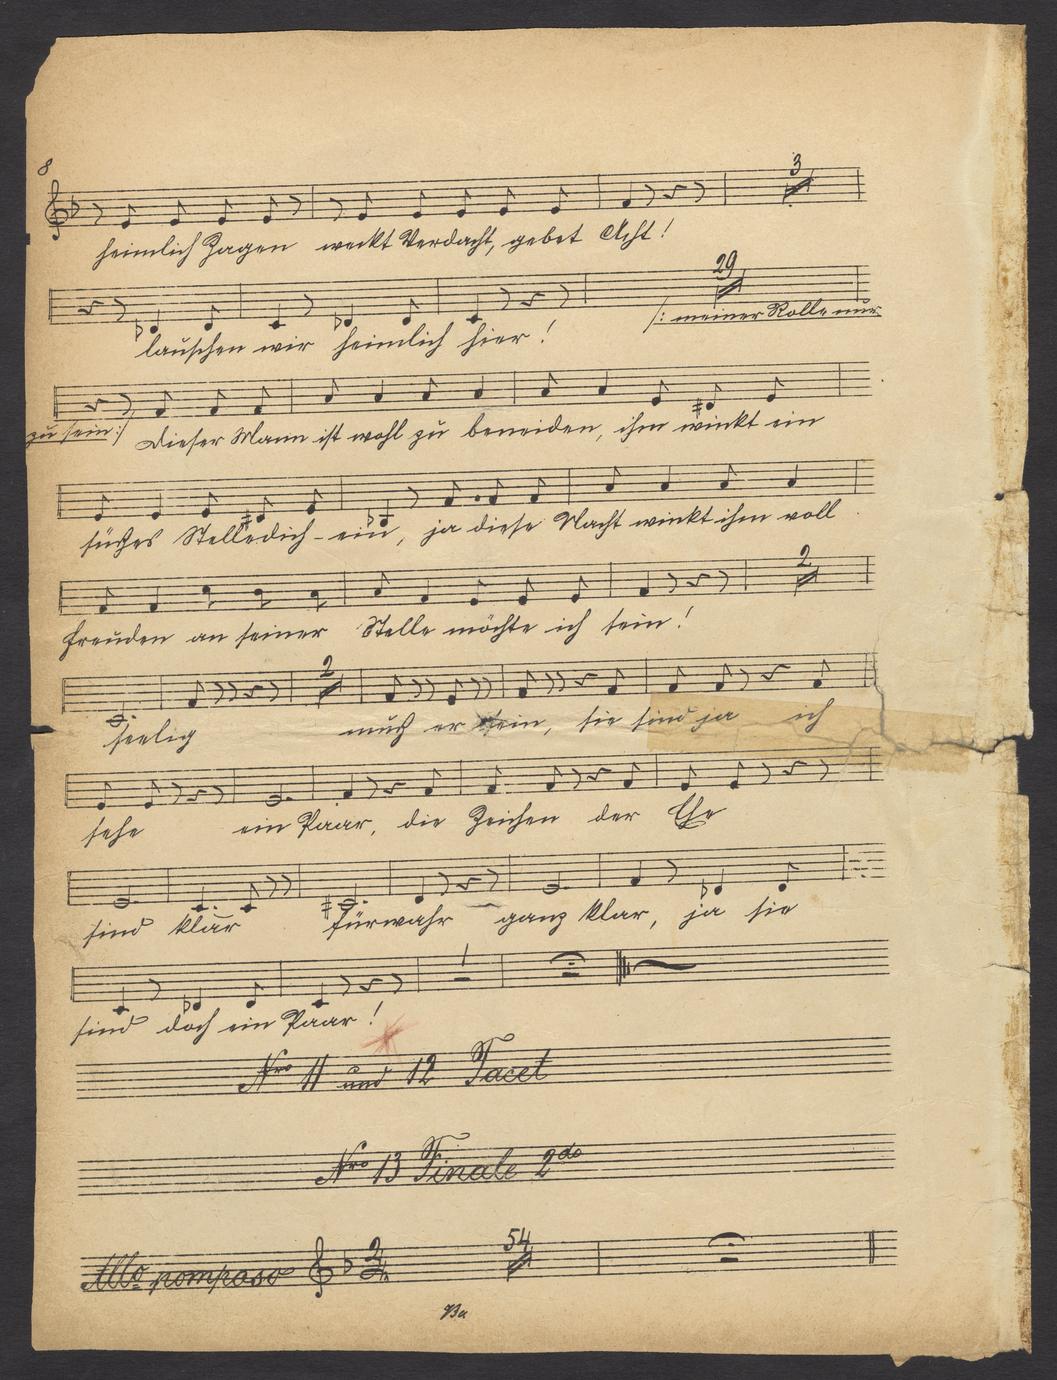 8
3
heimlich Zagen weckt Verdacht, gebet Acht!
29
lauschen wir heimlich hier! /: meiner Rolle nur
zu sein :/ Dieser Mann ist wohl zu beneiden, ihm winkt ein
süßes Stelledich-ein, ja diese Nacht winkt ihm voll
2
Freuden an seiner Stelle möchte ich sein!
2
seelig muß er sein, sie sind ja ich
sehe ein Paar, die Zeichen der Ehe
sind klar fürwahr ganz klar, ja sie
sind doch ein Paar!
Nro 11 und 12 Tacet
Nro 13 Finale 2do
Allo pomposo 2/4 54